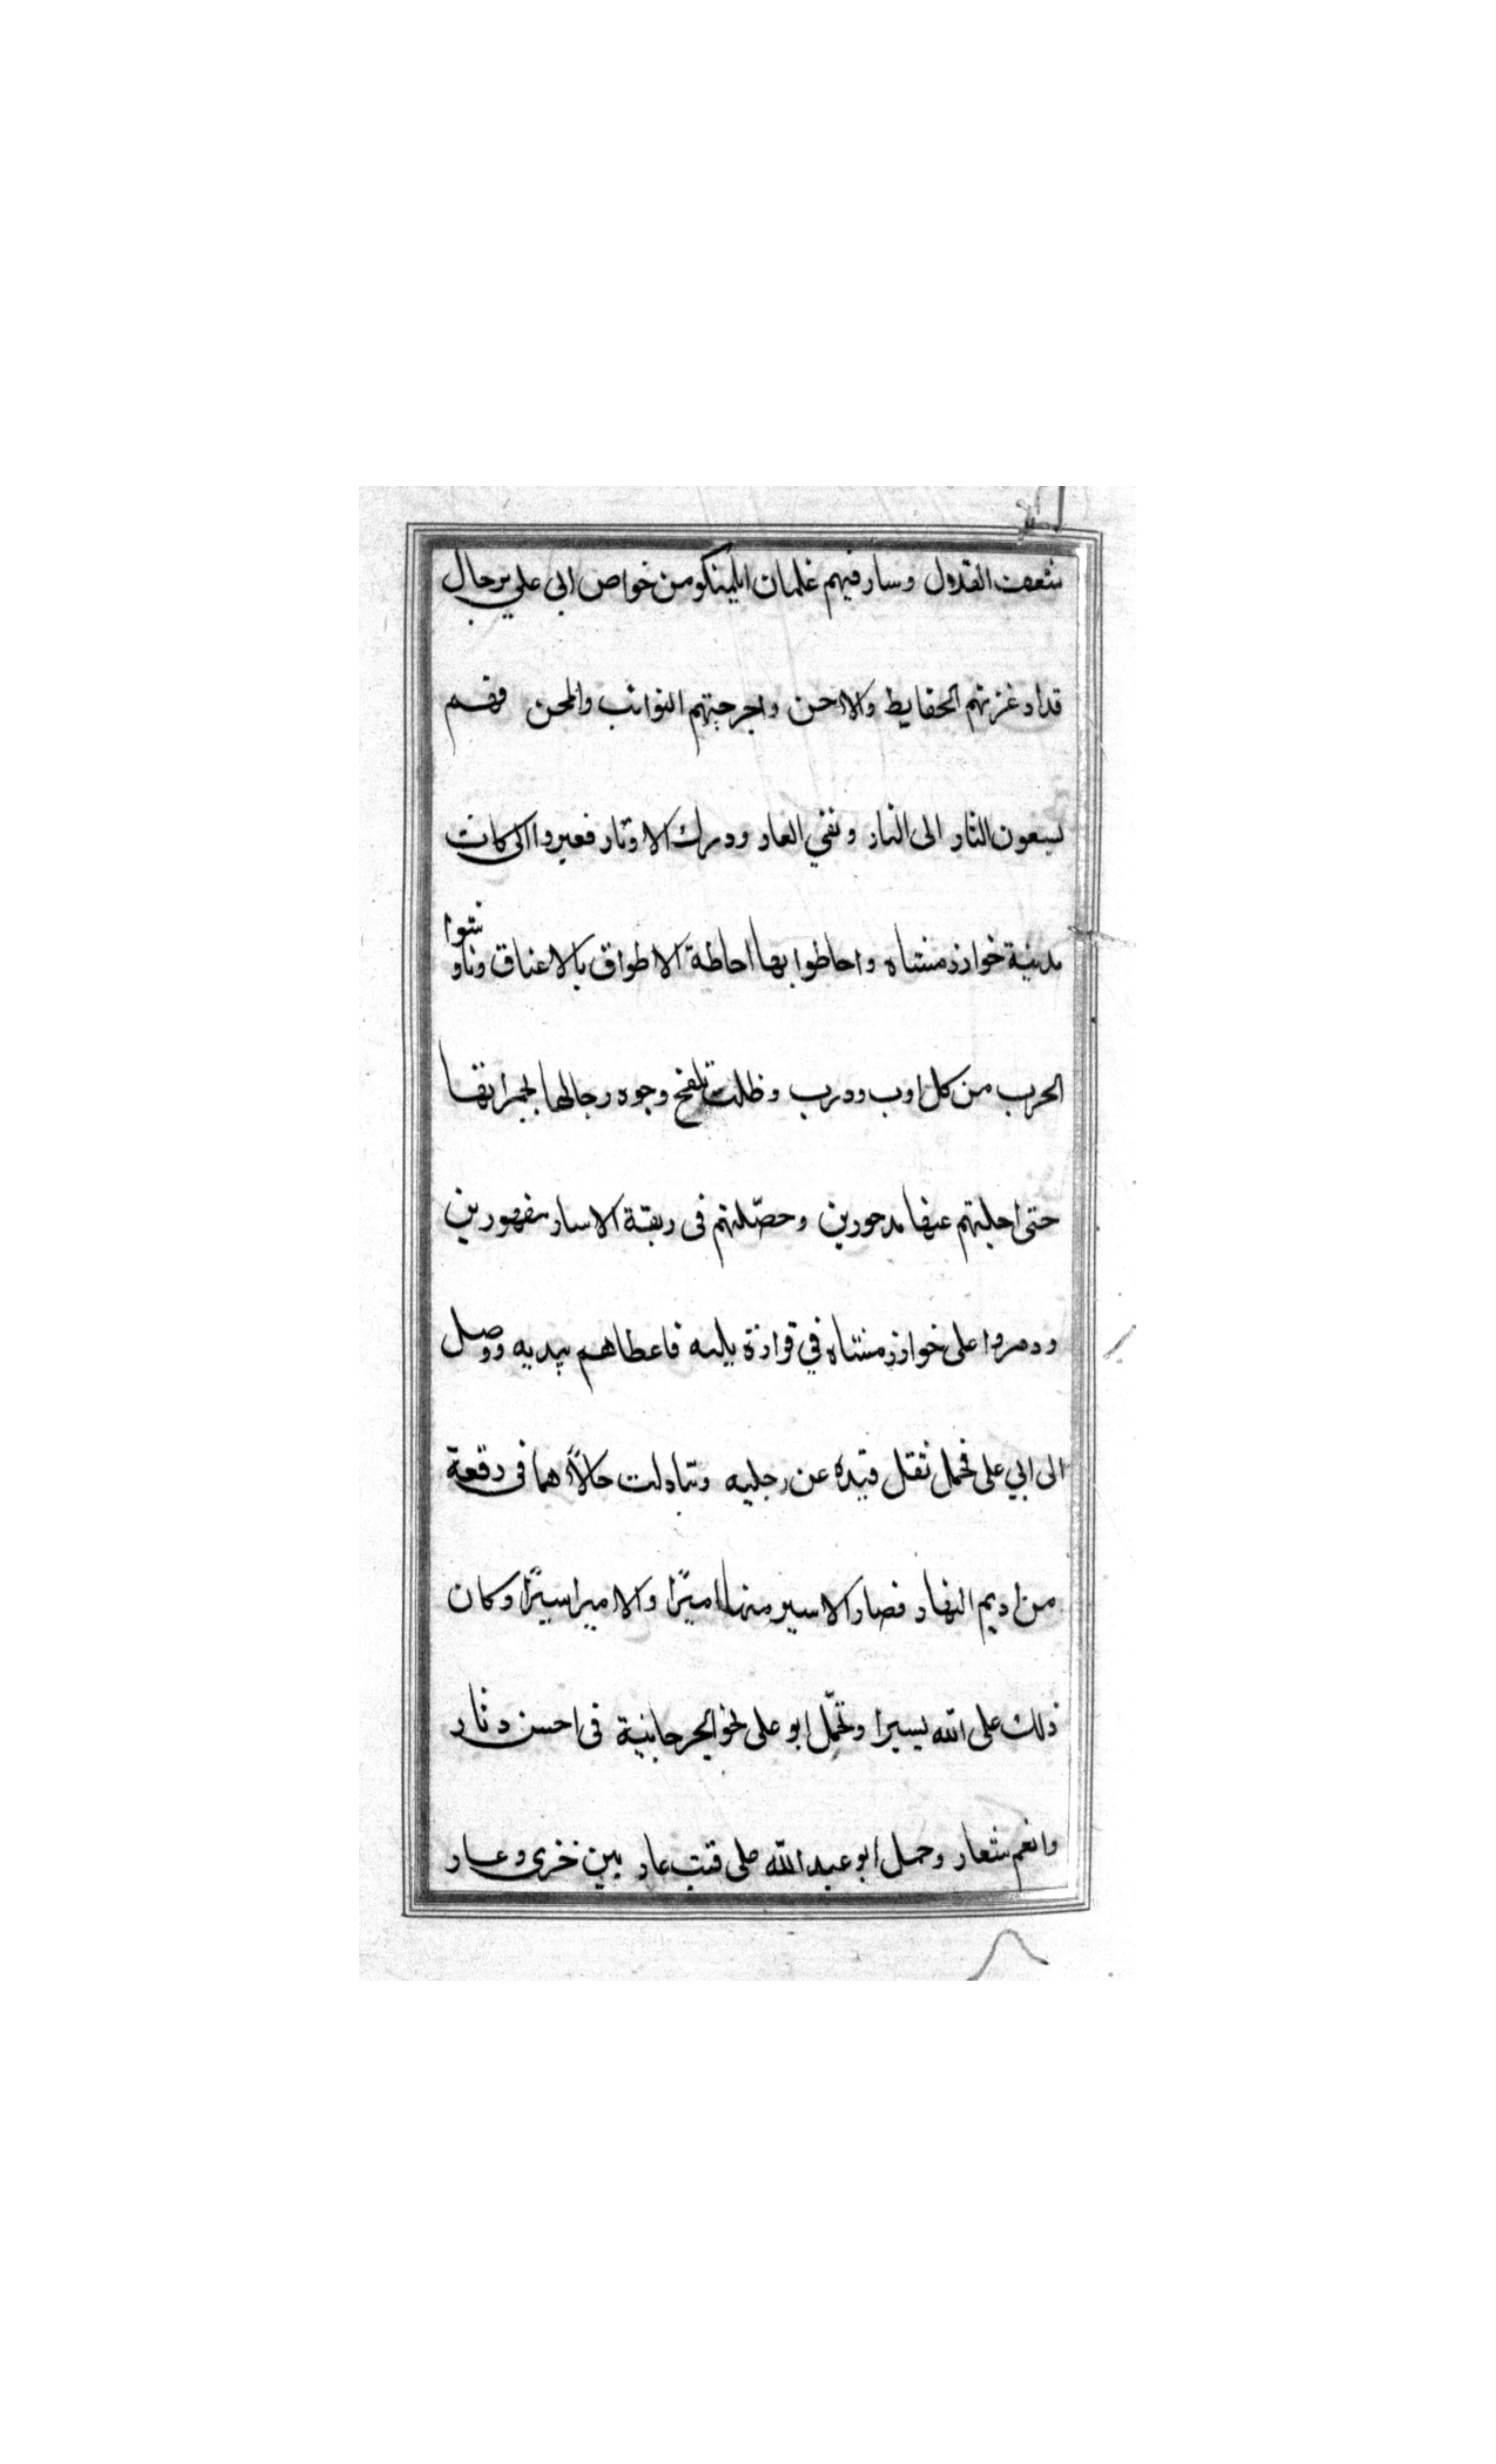 شعف القلال وسار فيهم غلمان ايلمنكو من خواص ابي علي برجال
قد اوغرتهم الحفايظ والاحن واحرجتهم النوائب والمحن فهم
يسعون النار الى الثار ونفي العار ودرك الاوتار فعبروا الى كاث
مدينة خوارزمشاه واحاطوا بها احاطة الاطواق بالاعناق وناوشوا
الحرب من كل اوب ودرب وظلت تلفح وجوه رجالها بجمراتها
حتى اجلتهم عنها مدحورين وحصّلتهم في ربقة الاسار مقهورين
ودمروا على خوارزمشاه في قرارة بلده فاعطاهم بيديه ووصل
الى ابي على فحمل ثقل قيده عن رجليه وتبادلت حالاً هما في رقعة
من اديم النهار فصار الاسير منها اميرًا والامير اسيرًا وكان
ذلك على الله يسيرا وتحمّل ابو على نحو الجرجانية في احسن دثار
وانعم شعار وحمل ابو عبد الله على قتب عار بين خزى وعار